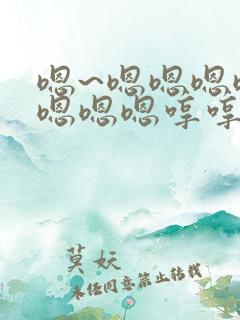 嗯~嗯嗯嗯嗯
嗯嗯嗯哼哼
莫妖
未经同意禁止转载